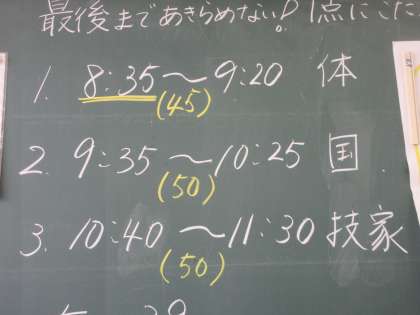 最後まであきらめない! 1点にこた
1. 8:35〜9:20 体
(45)
2. 9:35〜10:25 国
(50)
3. 10:40〜11:30 技家
(50)